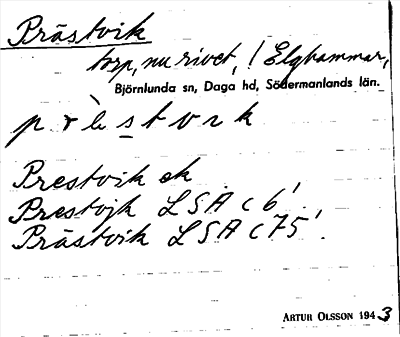 Prästvik
torp, nu rivet, ! Elghammar,
Björnlunda sn, Daga hd, Södermanlands län.
prὲstvɩk
Prestvik ek.
Prestvjk LSA C6'
Prästvik LSA C75'.
ARTUR OLSSON 1943